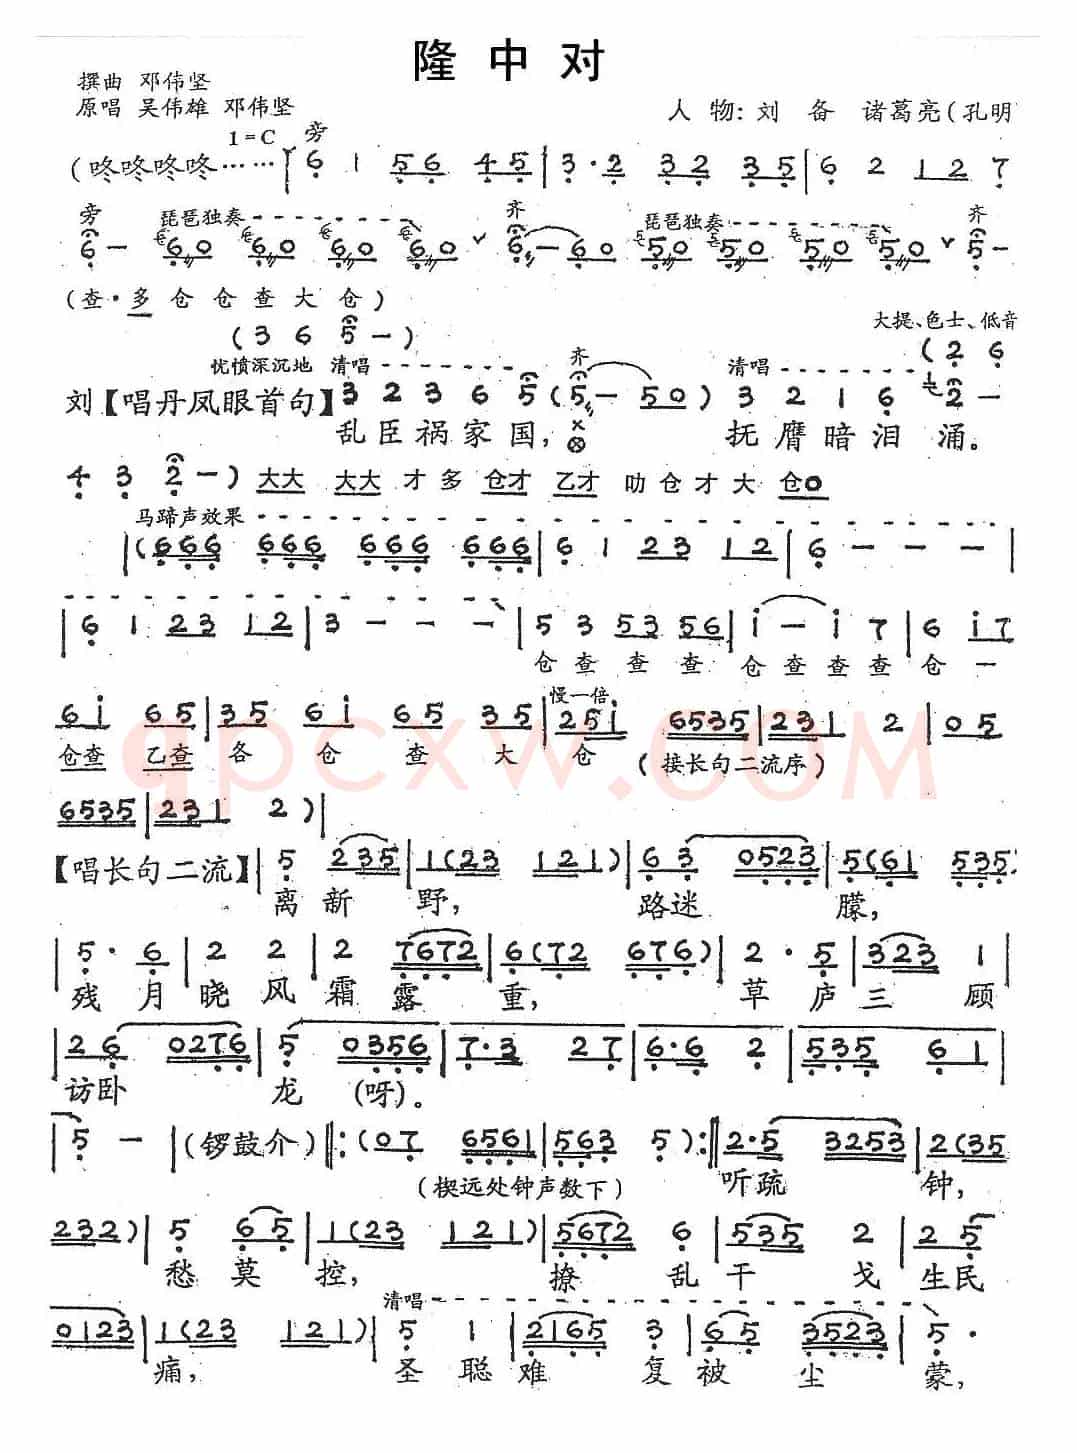 隆中对
撰曲 邓伟坚
原唱 吴伟雄 邓伟坚
人物:刘备 诸葛亮(孔明
1=C 旁
(咚咚咚咚…… 6 1 56 45 | 3·2 32 35 | 6 2 12 7
旁 琵琶独奏 齐 琵琶独奏 齐
6 - 60 60 60 60 6 - 60 50 50 50 50 5 -
(查·多仓仓查大仓)
(3 6 5 -) 大提、色士、低音
忧愤深沉地 清唱 齐 清唱 (2 6
刘【唱丹凤眼首句】3 2 3 6 5 (5 - 50) 3 2 1 6 2 -
乱臣祸家国, 抚膺暗泪涌。
4 3 2 -) 大大 大大 才多 仓才 乙才 叻仓才大 仓0
马蹄声效果
|(666 666 666 666 | 6 1 23 12 | 6 - - - |
| 6 1 23 12 | 3 - - - | 5 3 53 56 | i - i 7 | 6 i7
仓查查查 仓查查查仓一
慢一倍
6i 65 | 35 6i 65 35 | 25i 6535 | 231 2 | 05
仓查 乙查 各 仓 查 大 仓 (接长句二流序)
6535 | 231 2) |
【唱长句二流】| 5 235 | 1(23 121) | 63 0523 | 5(61 535
离新野, 路迷朦,
| 5·6 2 2 | 2 7672 | 6(672 676) | 2·5 | 323 1
残月晓风霜露重, 草庐三顾
| 26 0276 | 5 0356 | 7·3 27 | 6·6 2 | 535 61 |
访卧龙(呀)。
| 5 - | (锣鼓介) ‖: (07 6561 | 563 5) :‖ 2·5 3253 | 2(35
(楔远处钟声数下) 听疏钟,
232) | 5 65 | 1(23 121) | 5672 6 | 535 2 | 25
愁莫控, 撩乱干戈生民
清唱
0123 | 1(23 121) | 5 1 | 2165 3 | 65 3523 | 5·
痛, 圣聪难复被尘蒙,
qpcxw.COM